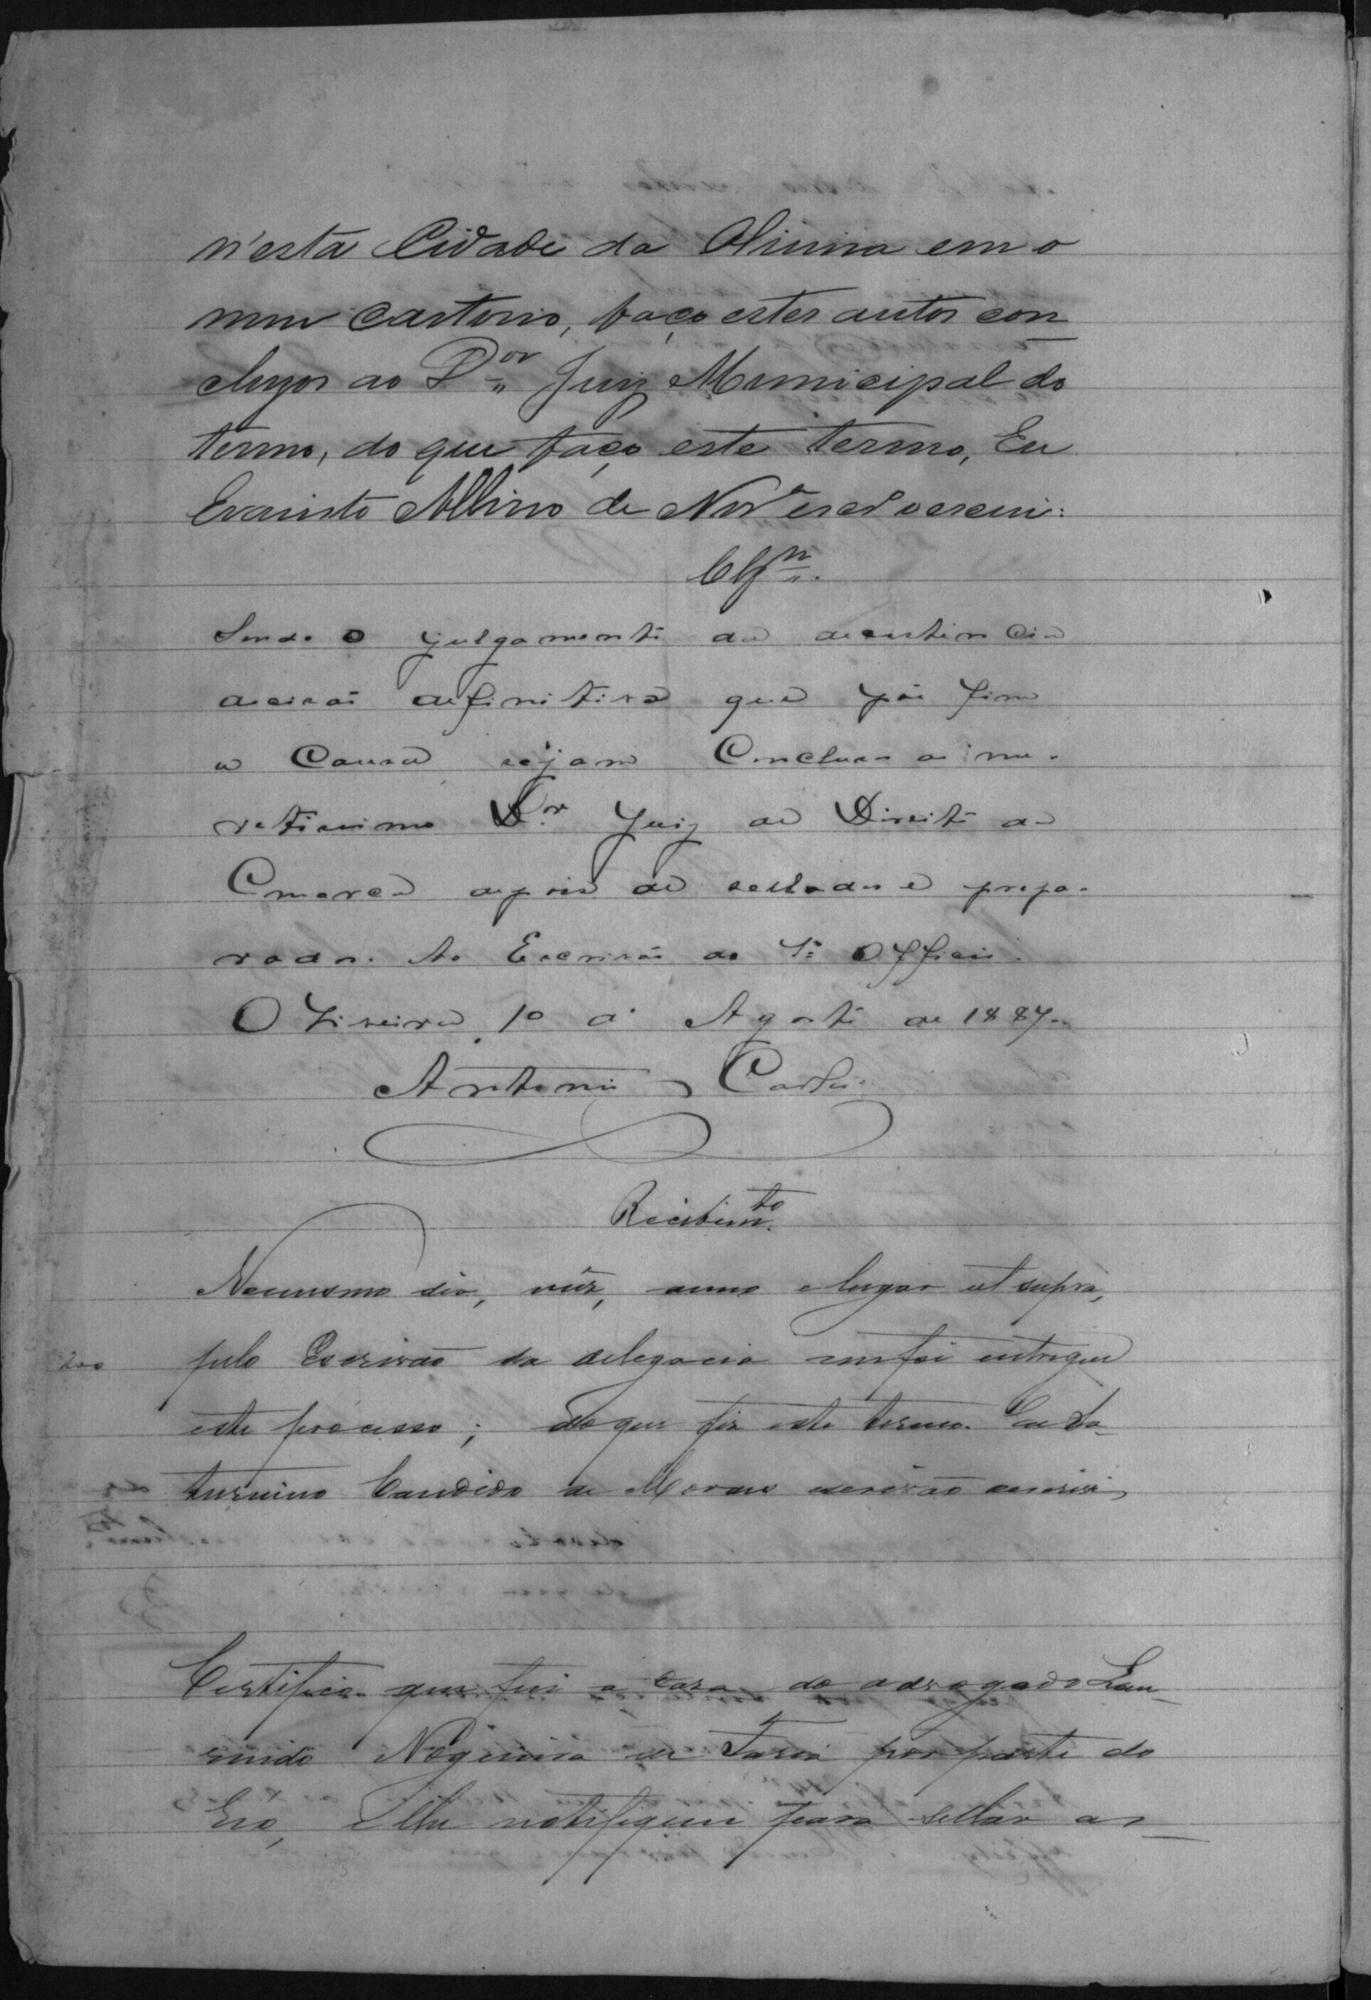 n'esta Cidade da Oliveira em o
meu cartorio, faço estes autos con
clusos ao Dor Juiz Municipal do
termo, do que faço este termo, Eu
Evaristo Albino de
Clsn.
Sendo o julgamento da desistencia
decisão definitiva que põe fim
a causa sejam conclusos ao me-
retissimo Dr. Juiz de Direito da
Comarca depois de sellados e prepa-
rados. Ao Escrivão do 1º Officio.
Oliveira, 10 de Agosto de 1887.
Antonio Carlos
Recebimto
No mesmo dia, mez, anno e lugar ut supra,
200
pelo Escrivão da delegacia me foi entregue
este processo; do que fiz este termo. Eu Sa-
turnino Candido de Moraes escrivão escrevi
Certifico que fui a casa do advogado Lau-
rindo Nogueira de Faria por parte do
Réo, e lhe notifiquei para sellar os